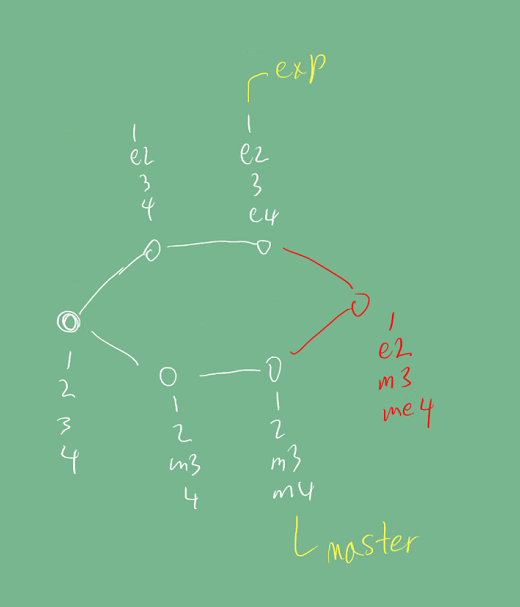 exp
1
e2
3
4
1
e2
3
e4
1
2
3
4
1
2
m3
4
1
2
m3
m4
1
e2
m3
me4
master